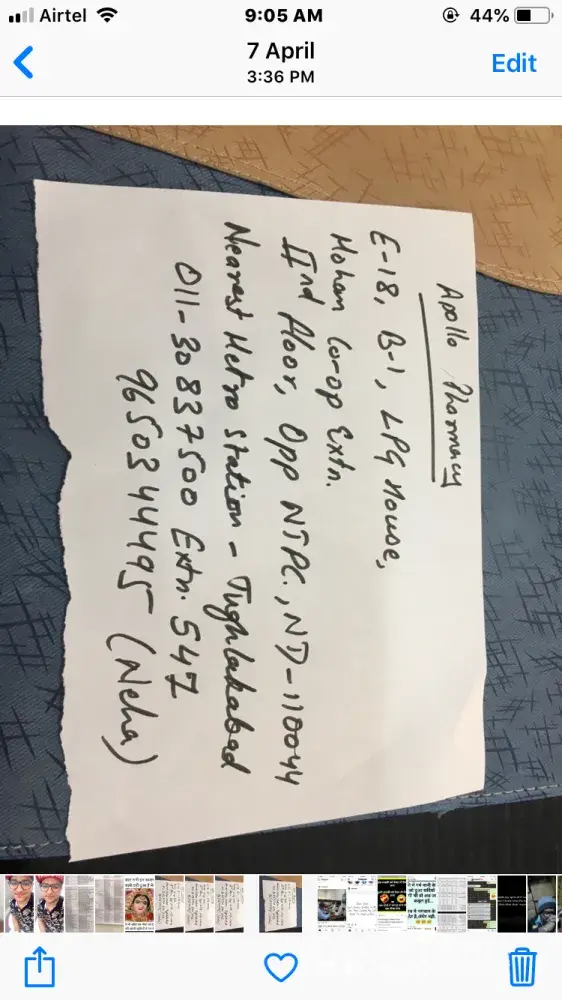 Airtel
9:05 AM
44%
7 April
3:36 PM
Edit
Apollo Pharmacy
E-18, B-1, LPG House,
Mohan Co-op Extn.
IInd floor, Opp NTPC, ND-110044
Nearest Metro Station - Tughlakabad
011-30837500 Extn. 547
9650344495 (Neha)